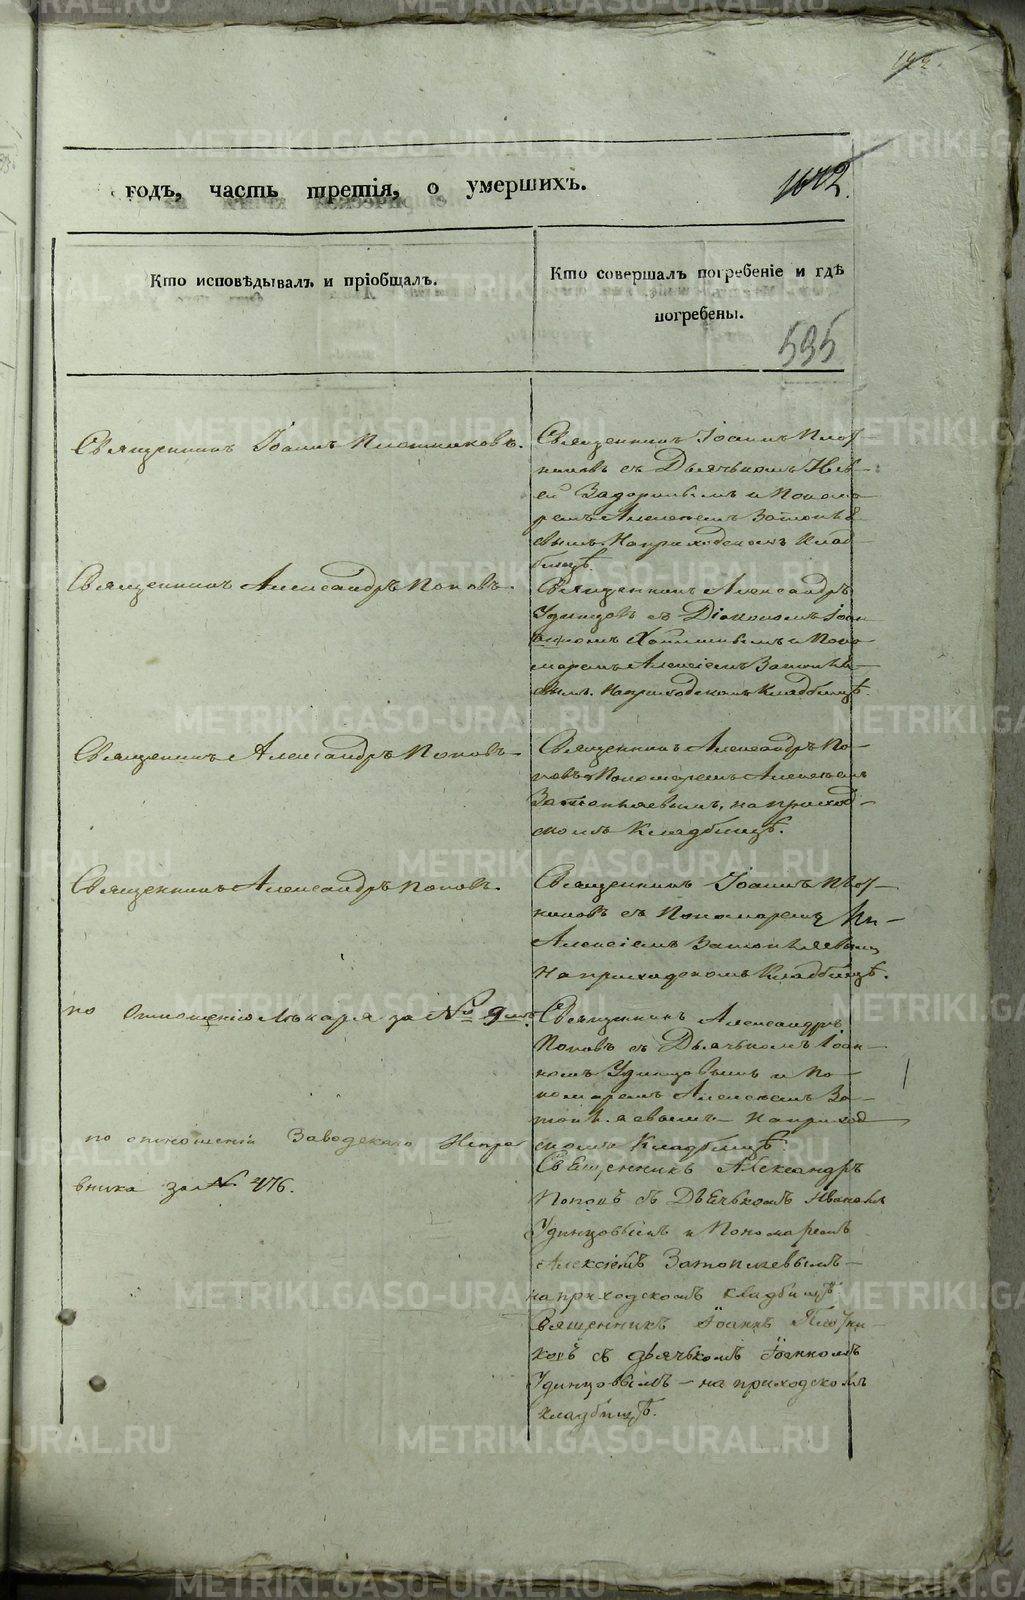 годъ, часть третія, о умершихъ.
Кто исповѣдывалъ и пріобщалъ.
Кто совершалъ погребеніе и гдѣ
погребены.
535
Священникъ Іоаннъ Плотниковъ.
Священникъ Іоаннъ Плот-
никовъ съ Дьячькомъ
Задоринымъ и Понома-
ремъ Алексѣемъ
на приходскомъ клад-
бищѣ.
Священникъ Александръ Поповъ.
Священникъ Александръ
Удинцовъ съ Діакономъ Іоан-
номъ и Поно-
маремъ Алексіемъ
на приходскомъ Кладбищѣ.
Священникъ Александръ Поповъ
Священникъ Александръ По-
повъ Пономаремъ Алексѣемъ
на приход-
скомъ Кладбищѣ.
Священникъ Александръ Поповъ.
Священникъ Іоаннъ Плот-
никовъ съ Пономаремъ
Алексіемъ
на приходскомъ Кладбищѣ.
по Отношенію Лѣкаря за № 9
Священникъ Александръ
Поповъ съ Дьячькомъ Іоан-
номъ Удинцовымъ и По-
номаремъ Алексѣемъ За-
на приход
скомъ Кладбищѣ.
по отношеніи Заводскаго Испра
вника за № 476.
Священникъ Александръ
Поповъ съ Дьячькомъ Иваномъ
Удинцовымъ и Пономаремъ
Алексіемъ Затопляевымъ
на приходскомъ кладбищѣ
Священникъ Іоаннъ Плотни-
ковъ съ дьячькомъ Іоанномъ
Удинцовымъ – на приходскомъ
кладбищѣ.
METRIKI.GASO-URAL.RU